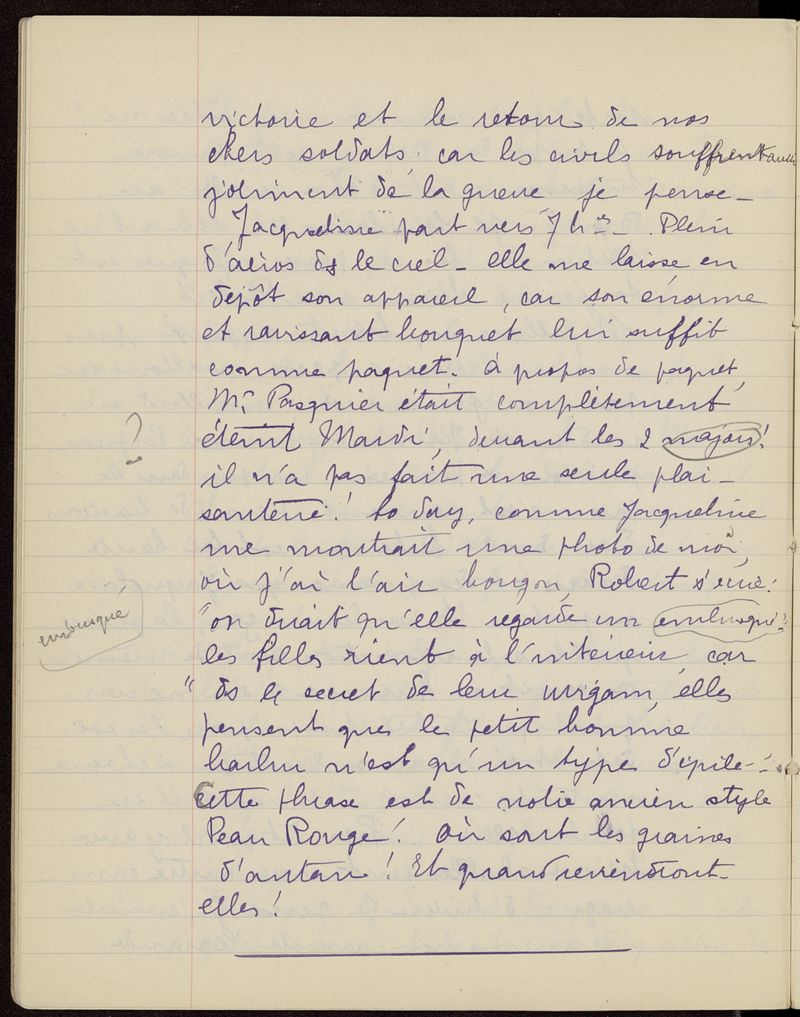 victoire et le retour de nos
chers soldats, car les civils souffrent aussi
joliment de la guerre je pense –
Jacqueline part vers 7 hres – Plein
d'aéros ds le ciel – elle me laisse en
dépôt son appareil, car son énorme
et ravissant bouquet lui suffit
comme paquet. à propos de paquet,
Mr Pasquier était complètement
éteint Mardi, devant les 2 majors !
?
il n'a pas fait une seule plai-
santerie ! to day, comme Jacqueline
me montrait une photo de moi,
où j'ai l'air bougon, Robert s'écrie :
"on dirait qu'elle regarde un embusqué !
embusqué
les filles rient à l'intérieur, car
" ds le secret de leur wigam, elles
pensent que le petit homme
barbu n'est qu'un type d'épile- :
Cette phrase est de notre ancien style
Peau Rouge ! Où sont les graines
d'antan ! Et quand reviendront-
elles !